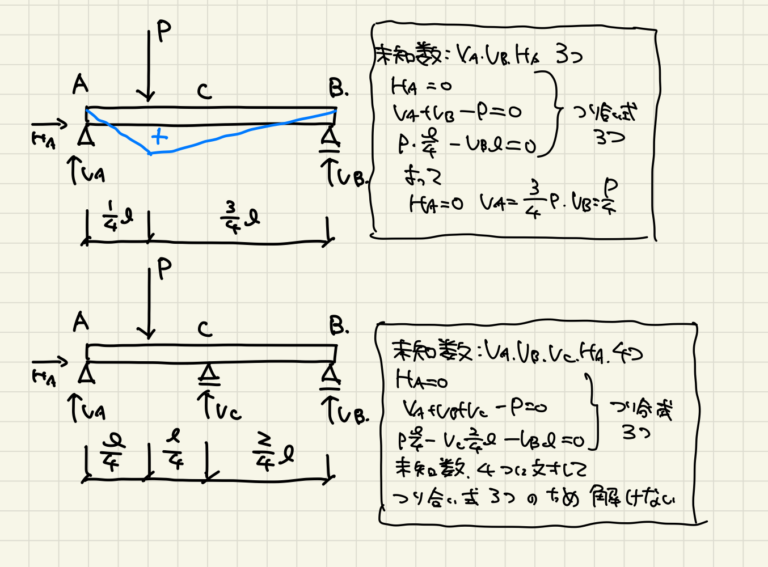 P
A
C
B.
HA
+
VA
VB.
1/4 l
3/4 l
未知数:VA.VB.HA 3つ
HA=0
VA+VB-P=0
P・l/4-VBl=0
つり合い式
3つ
よって
HA=0 VA=3/4P.VB=P/4
P
A
C
B.
HA
VA
VC
VB.
l/4
l/4
2/4 l
未知数:VA.VB.VC.HA.4つ
HA=0
VA+VB+VC-P=0
Pl/4-VC2/4l-VBl=0
つり合い式
3つ
未知数.4つに対して
つり合い式3つのため解けない